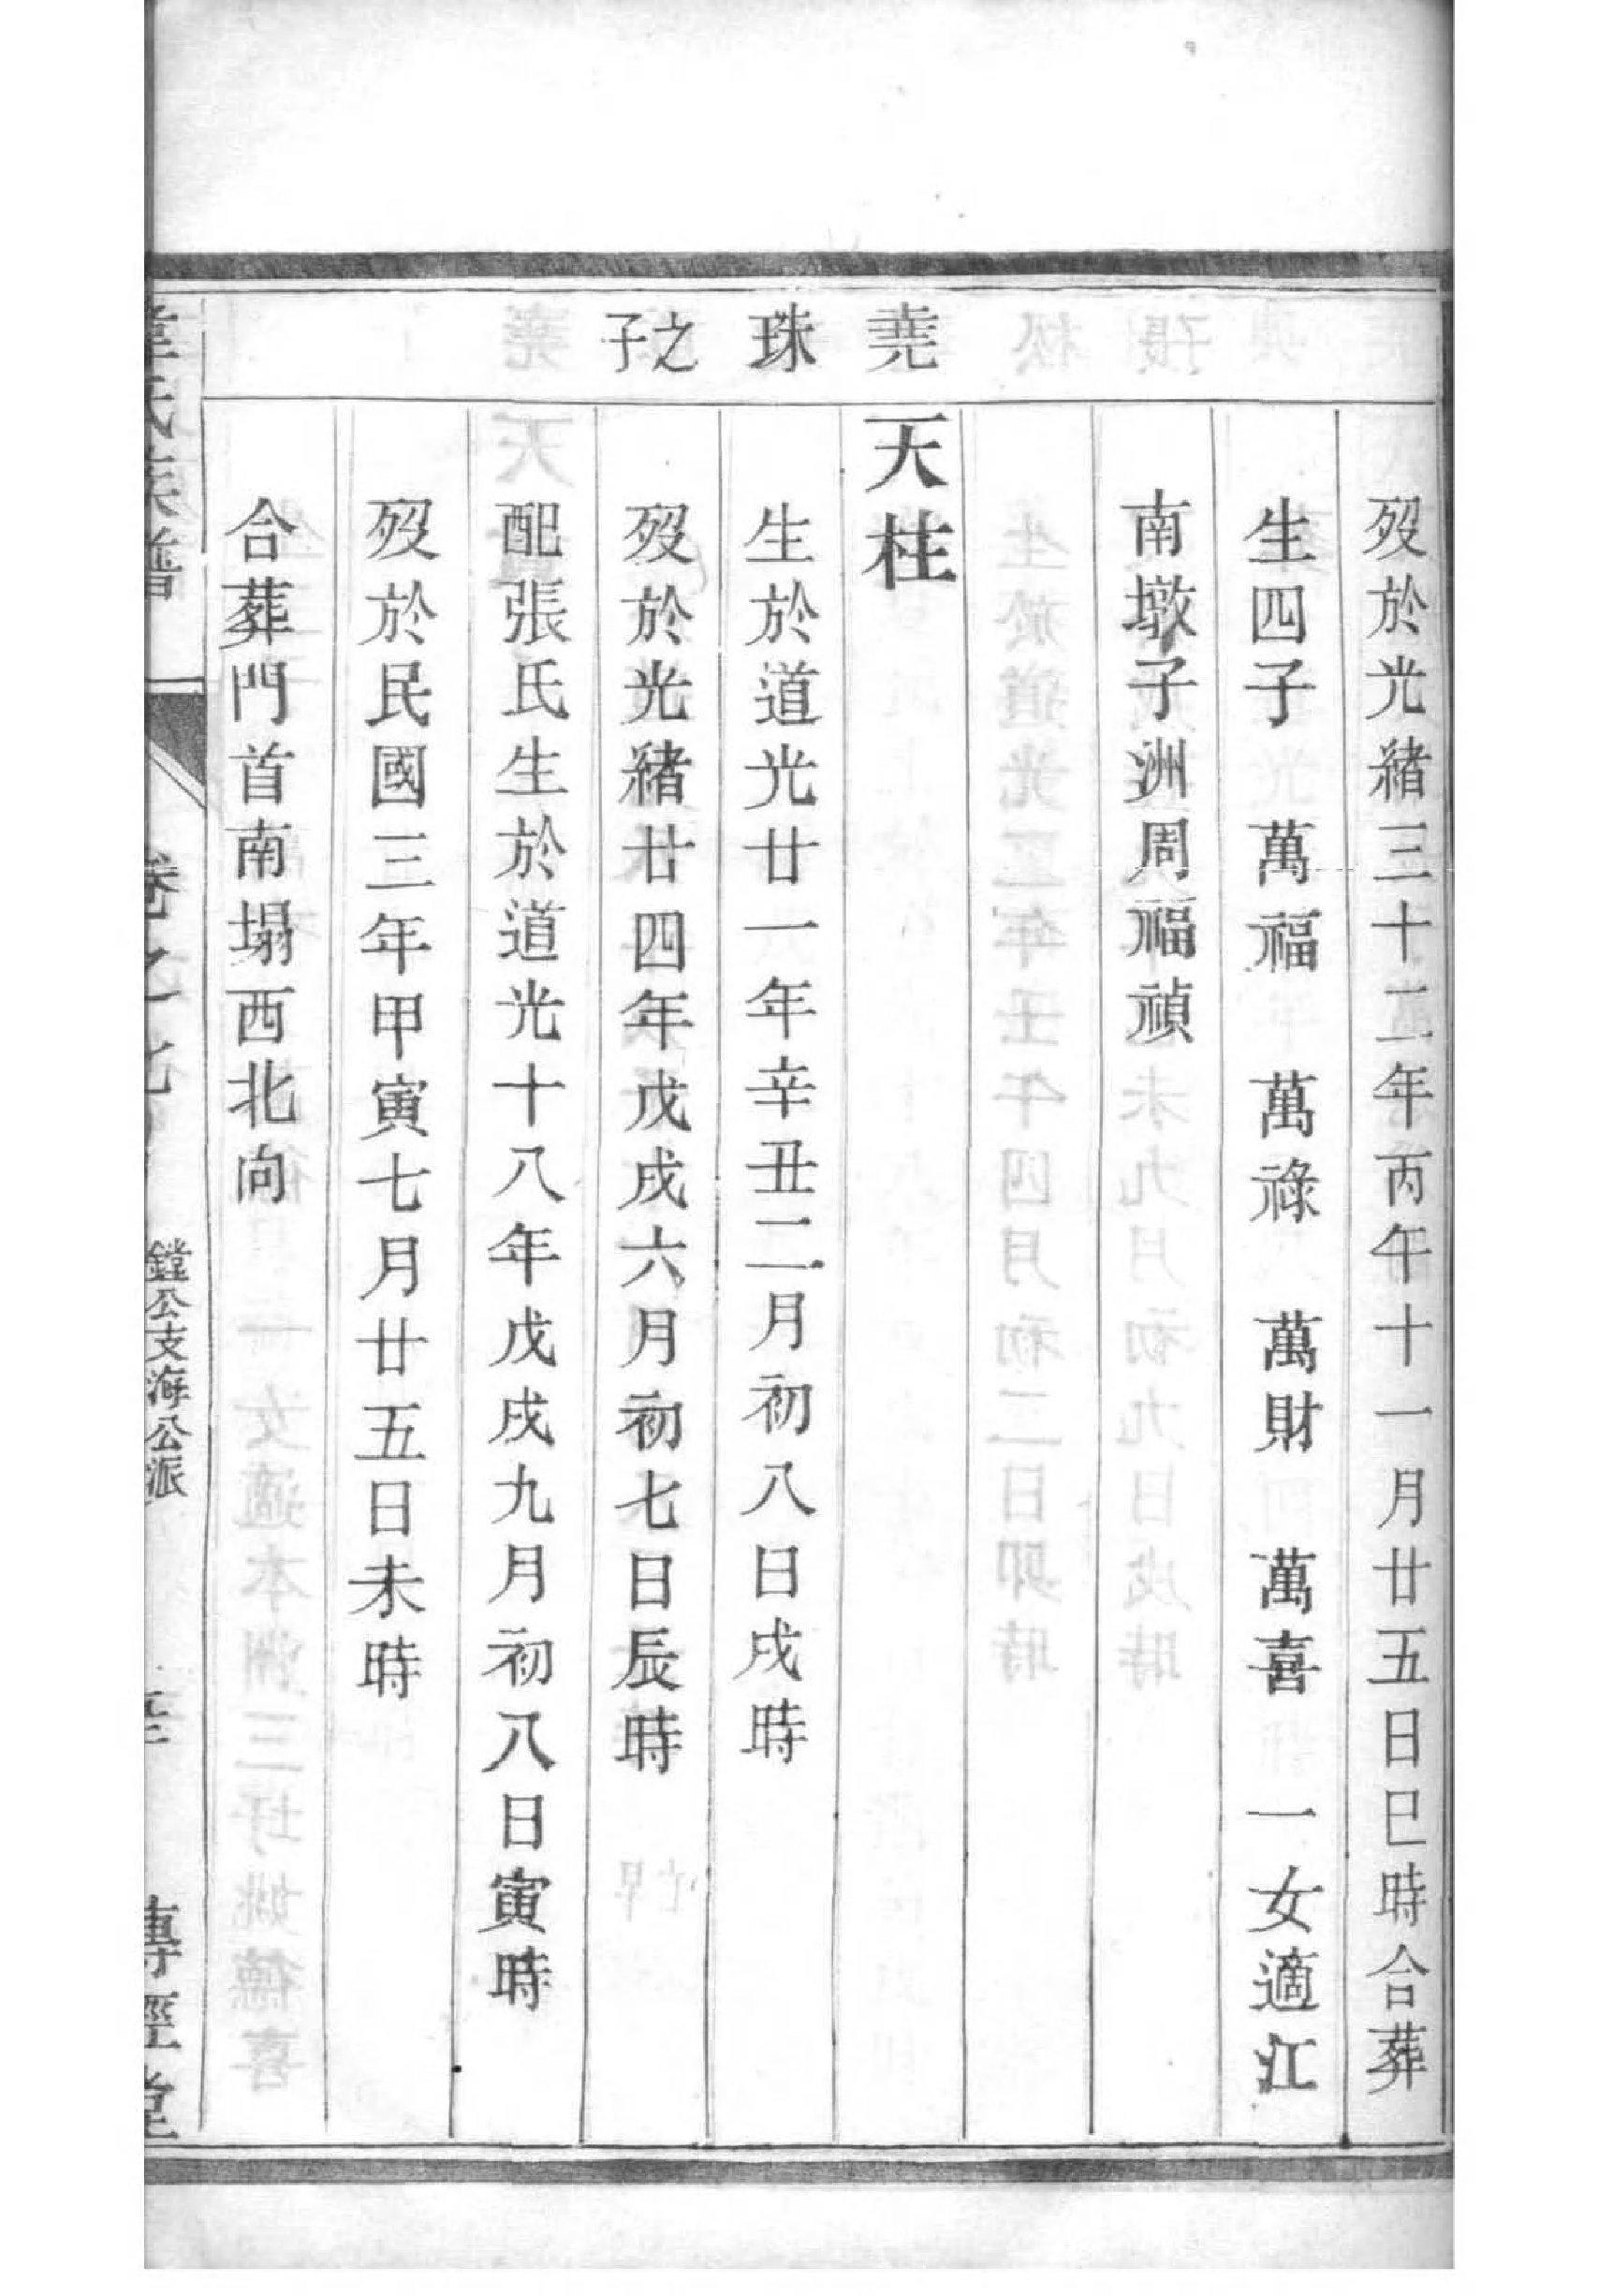 堯珠之子
歿於光緒三十二年丙午十一月廿五日巳時合葬
生四子 萬福 萬祿 萬財 萬喜 一女適江
南墩子洲周福禎
天柱
生於道光廿一年辛丑二月初八日戌時
歿於光緒廿四年戊戌六月初七日辰時
配張氏生於道光十八年戊戌九月初八日寅時
歿於民國三年甲寅七月廿五日未時
合葬門首南塌西北向
氏族譜
卷之
鏜公支海公派
傳經堂